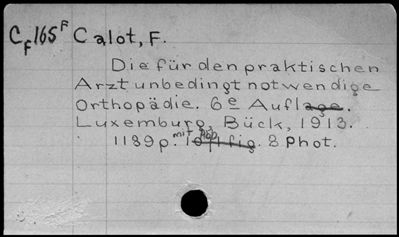 C_F 165^F Calot, F.
Die für den praktischen
Arzt unbedingt notwendige
Orthopädie. 6e Auflage.
Luxemburg, Bück, 1913.
1189 p. mit Abb. 8 Phot.